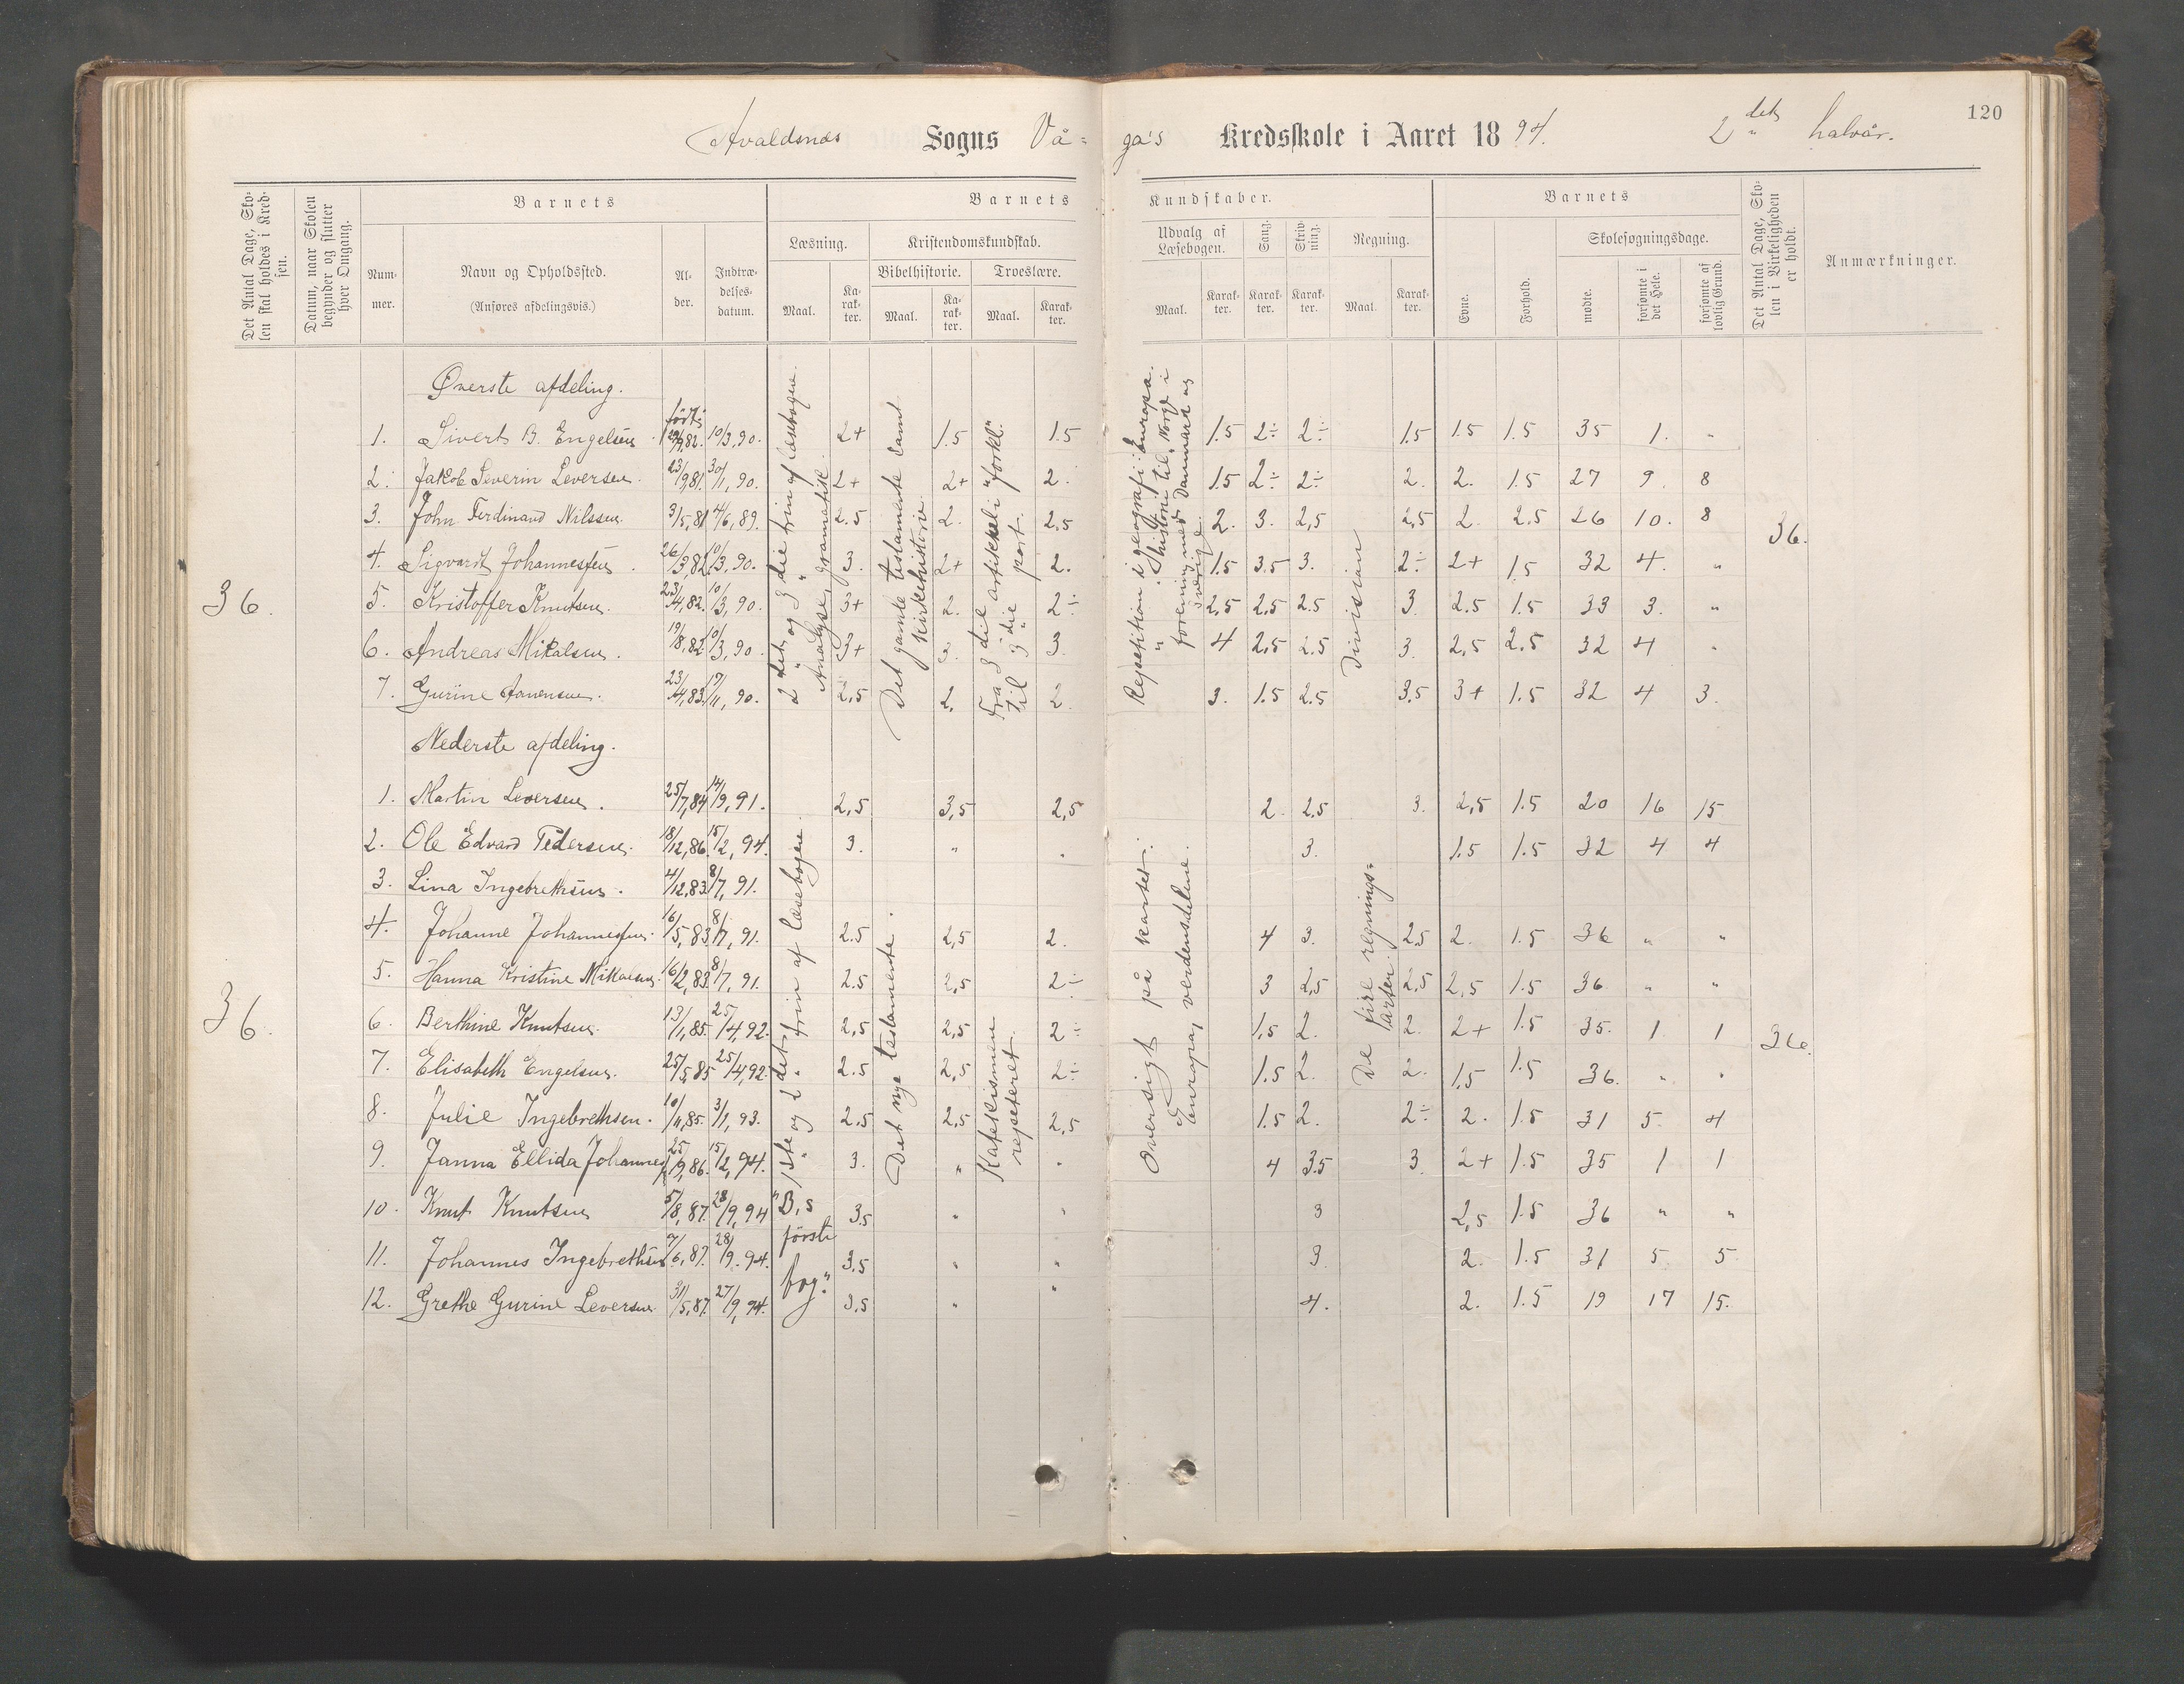 120
Avaldsnæs Sogns Vå=ga's Kredsskole i Aaret 1894. 2det halvår.
Det Antal Dage, Skolen skal holdes i Kredsen.
Datum, naar Skolen begynder og slutter hver Omgang.
Barnets
Barnets Kundskaber.
Barnets
Det Antal Dage, Skolen i Virkeligheden er holdt.
Anmærkninger.
Nummer.
Navn og Opholdssted.
(Anføres afdelingsvis.)
Alder.
Indtrædelsesdatum.
Læsning.
Kristendomskundskab.
Bibelhistorie.
Troeslære.
Udvalg af Læsebogen.
Sang.
Skrivning.
Regning.
Evne.
Forhold.
Skolesøgningsdage.
Maal. Karakter. Maal. Karakter. Maal. Karakter. Maal. Karakter. Karakter. Karakter. Maal. Karakter.
mødte. forsømte i det Hele. forsømte af lovlig Grund.
Øverste afdeling.
født:
1. Sivert B. Engelsen. 29/9,82. 10/3,90. 2+ 1.5 1.5 1.5 2÷ 2÷ 1.5 1.5 1.5 35 1. "
2. Jakob Severin Leversen. 23/9,81. 30/11,90. 2+ 2+ 2. 1.5 2÷ 2÷ 2. 2. 1.5 27 9. 8
3. John Ferdinand Nilssen. 3/5,81 4/6,89. 2.5 2. 2,5 2. 3. 2,5 2,5 2. 2.5 26 10. 8
4. Sigvardt Johannesen. 26/3,82. 10/3,90. 3. 2+ 2. 1.5 3.5 3. 2÷ 2+ 1.5 32 4. "
5. Kristoffer Knutsen. 23/4,82. 10/3,90. 3+ 2. 2÷ 2,5 2,5 2.5 3. 2.5 1.5 33 3. "
6. Andreas Mikalsen. 19/8,82 10/3,90. 3+ 3. 3. 4 2,5 2.5 3. 2,5 2.5 32 4 "
7. Gurine 23/4,83. 19/11,90. 2,5 2. 2. 3. 1.5 2.5 3.5 3+ 1.5 32 4 3.
36.
36.
2det og 3die trin af læsebogen.
Analyse, gramatikk.
Det gamle testamente samt kirkehistorie.
Fra 3die artikkel i "forkl." til 3die part.
Repetition i geografi: Europa.
" " historie til "Norge i forening med Danmark og Sverige.
Division
Nederste afdeling.
1. Martin Leversen. 25/7,84 14/9,91. 2,5 3,5 2,5 2. 2,5 3. 2,5 1.5 20 16 15
2. Ole Edvard Pedersen. 18/12,86. 15/2,94. 3. " " 3. 1.5 1.5 32 4 4
3. Lina Ingebrethsen. 4/12,83. 8/7,91.
4. Johanne Johannesen. 16/5,83. 8/7,91. 2.5 2,5 2. 4 3. 2,5 2. 1.5 36 " "
5. Hanna Kristine Mikalsen. 16/2,83. 8/7,91. 2.5 2,5 2÷ 3 2,5 2,5 2,5 1.5 36 " "
6. Berthine Knutsen. 13/1,85. 25/4,92. 2,5 2,5 2÷ 1,5 2. 2. 2+ 1.5 35. 1 1
7. Elisabeth Engelsen. 25/5,85 25/4,92. 2.5 2,5 2÷ 1.5 2. 2. 1.5 1.5 36. " "
8. Julie Ingebrethsen. 10/11,85. 3/1,93. 2.5 2,5 2,5 1.5 2. 2÷ 2. 1.5 31 5. 4
9. Janna Ellida Johannes 25/9,86. 15/2,94. 3. " " 4 3.5 3. 2+ 1.5 35 1 1
10. Knut Knutsen 5/8,87. 28/9,94 3.5 " " 3 2,5 1.5 36 " "
11. Johannes Ingebrethsen 7/6,87. 28/9.94. 3.5 " " 3. 2. 1.5 31 5. 5
12. Grethe Gurine Leversen. 31/5,87. 27/9,94. 3,5 " " 4. 2. 1.5 19 17 15.
36.
36.
1ste og 2det trin af læsebogen.
"B,s første bog."
Det nye testamente.
Katekismen repeteret.
Oversigt på kartet: Europa, verdensdelene.
De fire regningsarter.